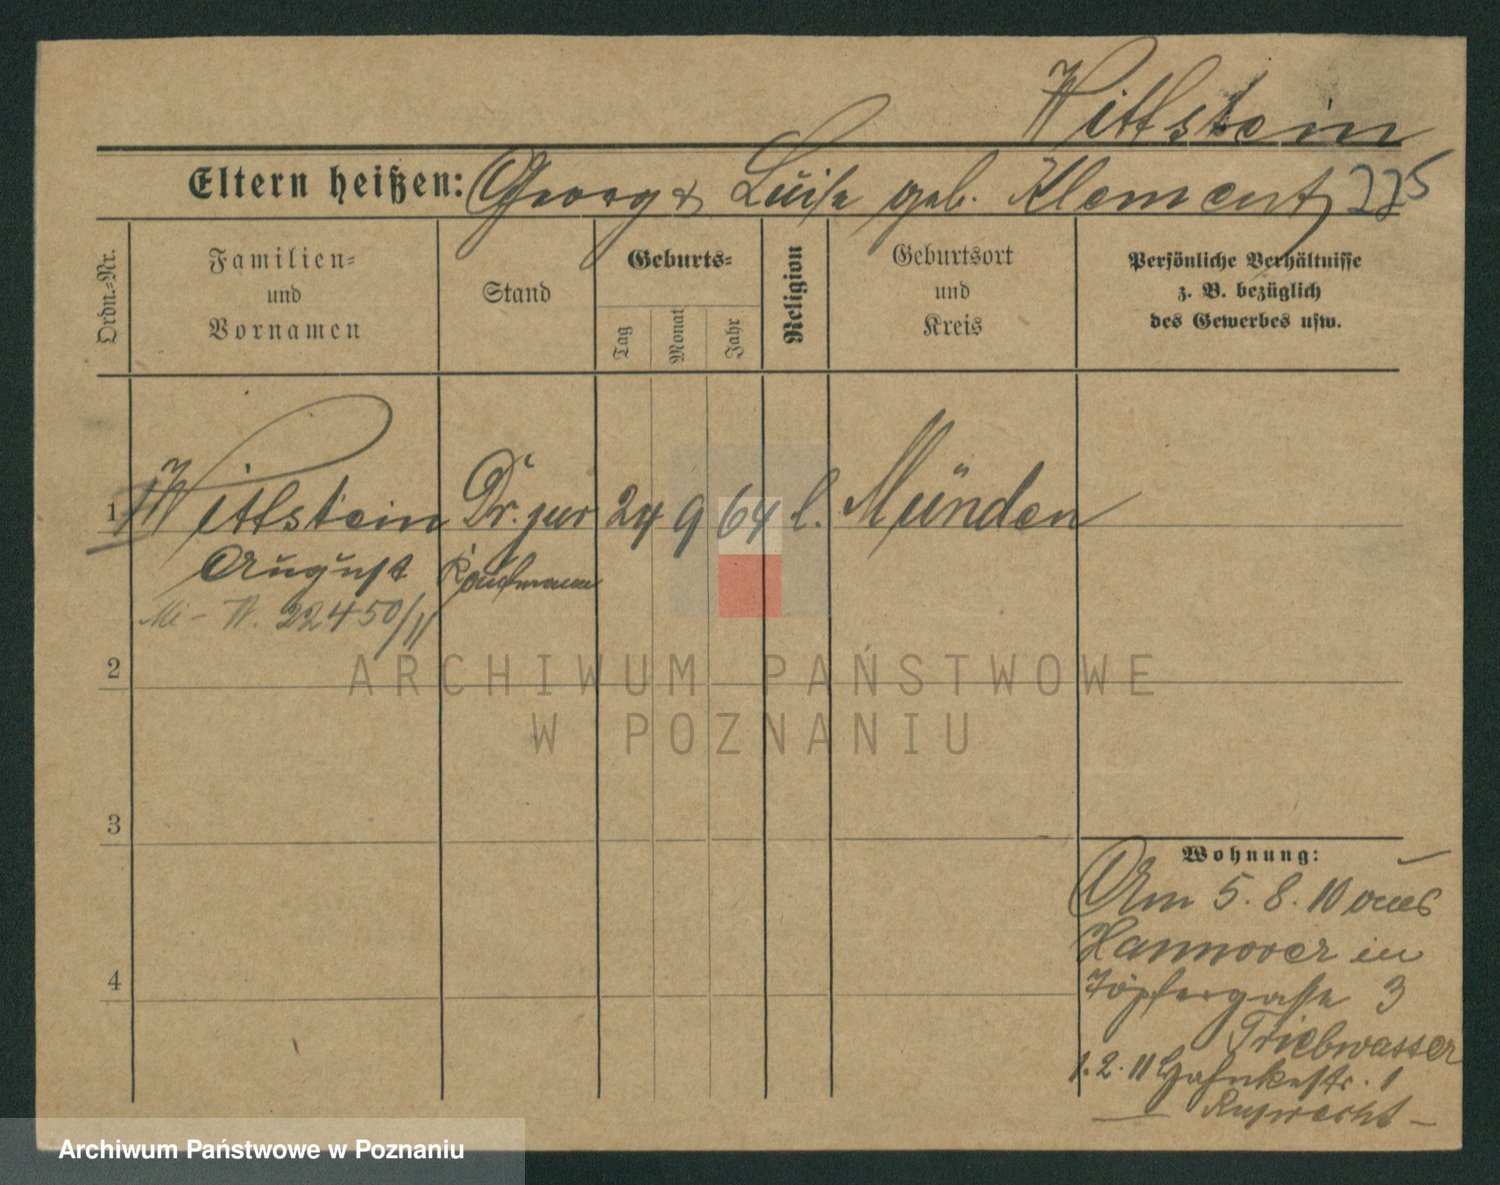 Wittstein
Eltern heißen: Georg & Luise geb. Klement 225
Ordn.-Nr.
Familien-
und
Vornamen
Stand
Geburts-
Tag
Monat
Jahr
Religion
Geburtsort
und
Kreis
Persönliche Verhältnisse
z. B. bezüglich
des Gewerbes usw.
1 Wittstein Dr. jur 24 9 64 l. Münden
August Kaufmann
Mi - W. 22450/11
2
3
4
Wohnung:
Am 5. 8. 10 aus
Hannover in
Töpfergasse 3
Triebwasser
1. 2. 11 Hohnkestr. 1
Ruprecht
ARCHIWUM PAŃSTWOWE
W POZNANIU
Archiwum Państwowe w Poznaniu